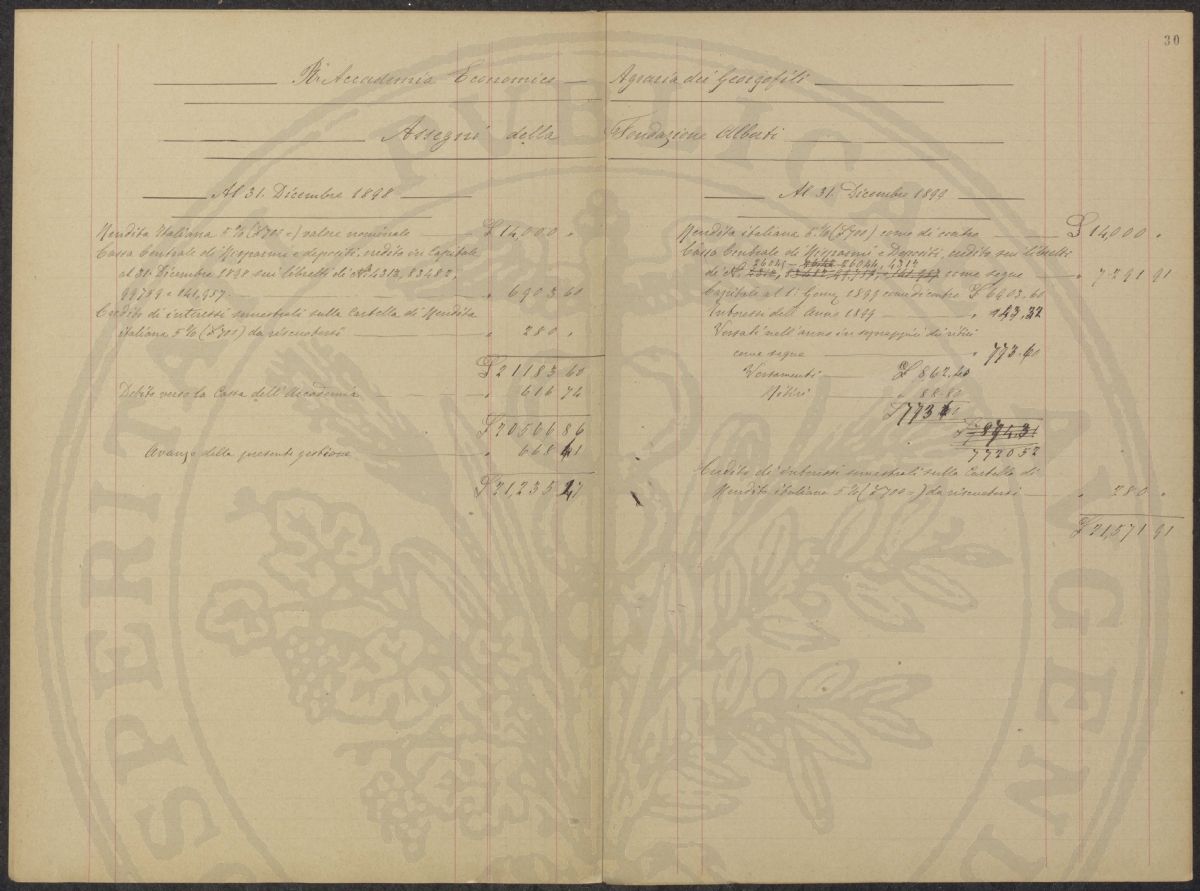 30
R. Accademia Economico — Agraria dei Georgofili
Assegni della Fondazione Alberti
Al 31. Dicembre 1898
Rendita Italiana 5% (£ 700 =) valore nominale £ 14,000 "
Cassa Centrale di Risparmi e depositi, credito in Capitale
al 31. Dicembre 1898 sui libretti di N. 4312, 83482,
99719 e 141,957 " 6903 60
Credito di interessi semestrali sulla Cartella di Rendita
italiana 5% (£ 700) da riscuotersi " 280 "
£ 21183 60
Debito verso la Cassa dell'Accademia " 616 74
£ 20566 86
Avanzo della presente gestione " 668 41
£ 21235 27
Al 31. Dicembre 1899
Rendita italiana 5% (£ 700) come di contro £ 14,000 "
Cassa Centrale di Risparmi e Depositi, credito sui libretti
26045 26044, 4312
di N. 4312, 83482, 99719, e 141,957 come segue " 7291 91
Capitale al 1° Genn. 1899 come di contro £ 6903.60
Interessi dell'Anno 1899 " 43,32
Versati nell'anno in soprappiù di ritiri
come segue " 773.60
Versamenti £ 862.40
Ritiri " 88.80
£ 773 60
7720 52
Credito di interessi semestrali sulla Cartella di
Rendita italiana 5% (£ 700 =) da riscuotersi " 280 "
£ 21,571 91
PROSPERITATI PUBLICAE AVGENDAE